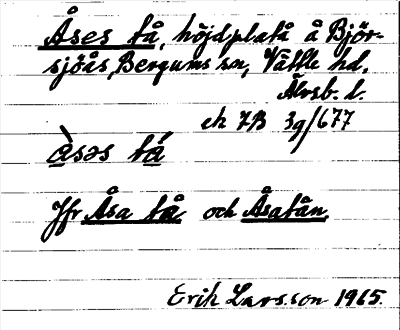 Åses tå, höjdplatå å Björ-
sjöås, Bergums sn, Vättle hd,
Älvsb. l.
ek 7B 3g/677
à̱səs tá̱
Jfr Åsa tå och Åsatån.
Erik Larsson 1965.